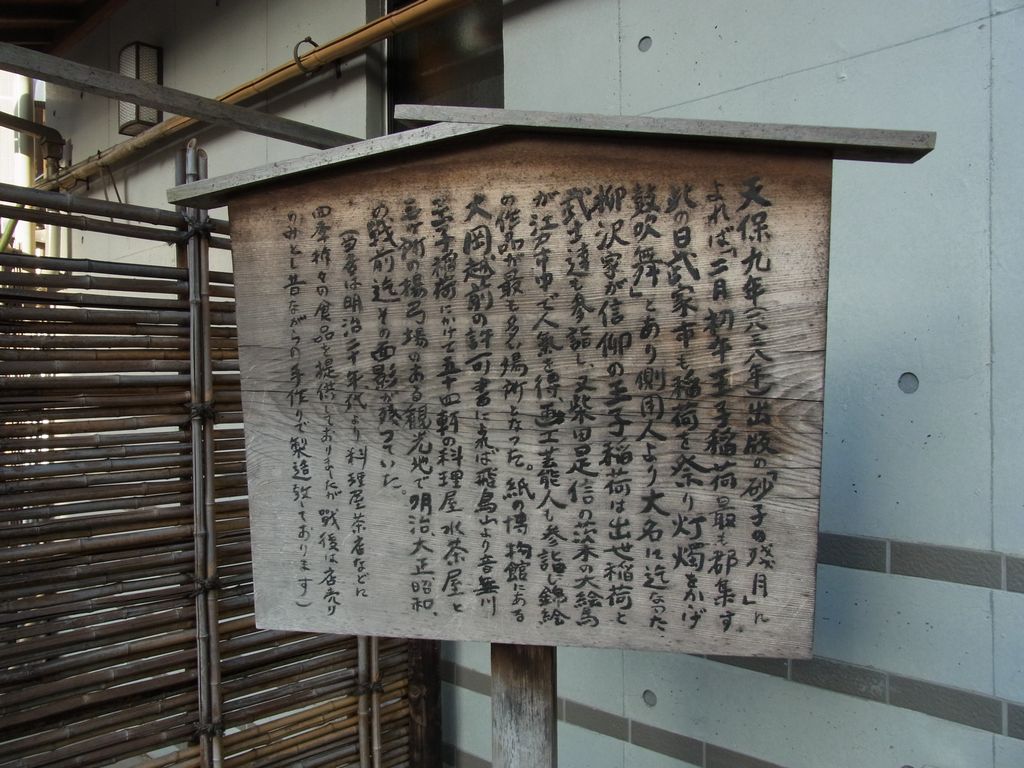 天保九年(一八三八年)出版の「砂子の残月」に
よれば「二月初午王子稲荷最も郡集す。
此の日武家市も稲荷を祭り灯燭をかゞげ
鼓吹舞」とあり側用人より大名に迄なった
柳沢家が信仰の王子稲荷は出世稲荷と
武士達も参詣し、又柴田是信の茨木の大絵馬
が江戸中で人氣を得画工芸能人も参詣し錦絵
の作品が最も多い場所となった。紙の博物館にある
大岡越前の許可書によれば飛鳥山より音無川
王子稲荷にかけて五十四軒の料理屋水茶屋と
三ヶ所の楊弓場のある観光地で明治大正昭和、
の戦前迄その面影が残っていた。
(当店は明治二十年代より料理屋茶店などに
四季折々の食品を提供しておりましたが戦後は店売り
のみとし昔ながらの手作りで製造致しております)